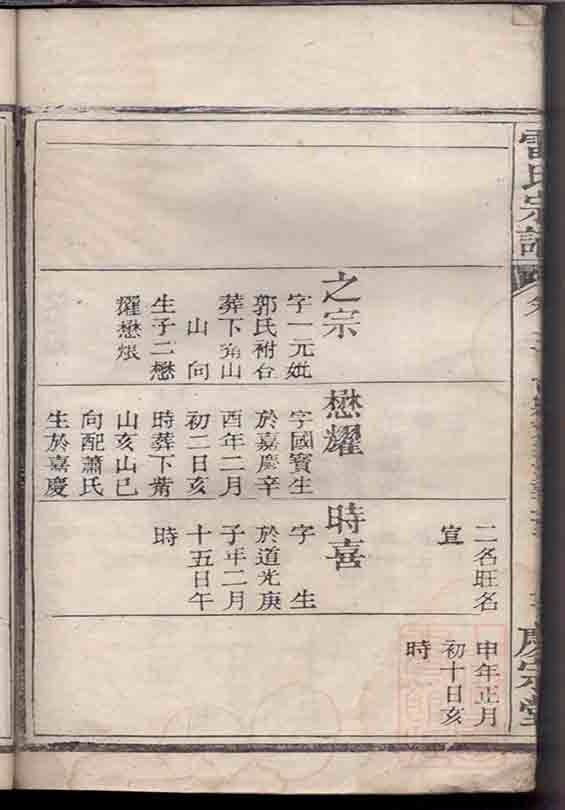 雷氏宗譜
慶宗堂
之宗
字一元妣
郭氏祔合
葬下嵛山
山向
生子二懋
耀懋烺
懋耀
字國寶生
於嘉慶辛
酉年二月
初二日亥
時葬下嵛
山亥山巳
向配蕭氏
生於嘉慶
二名旺名
宜
時喜
字生
於道光庚
子年二月
十五日午
時
申年正月
初十日亥
時